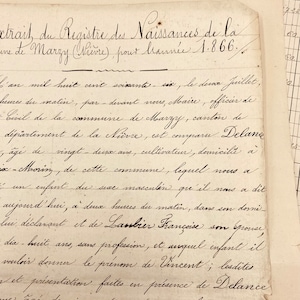 xtrait du Registre des Naissances de la
une de Marzy (Nièvre) pour l'année 1.866.
l an mil huit cent soixante six, le deux juillet,
heures du matin, par-devant nous, Maire, officier de
Civil de la commune de Marzy, canton de
département de la Nièvre, est comparu Delance
, âgé de vingt-deux ans, cultivateur, domicilié à
x-Morin, de cette commune, lequel nous a
un enfant du sexe masculin que il nous a dit
aujourd'hui, à deux heures du matin, dans son domi
lui déclarant et de Lautier Françoise son épouse,
dix-huit ans, sans profession, et auquel enfant il
vouloir donner le prénom de Vincent ; lesdites
n et présentation faites en présence de Delance